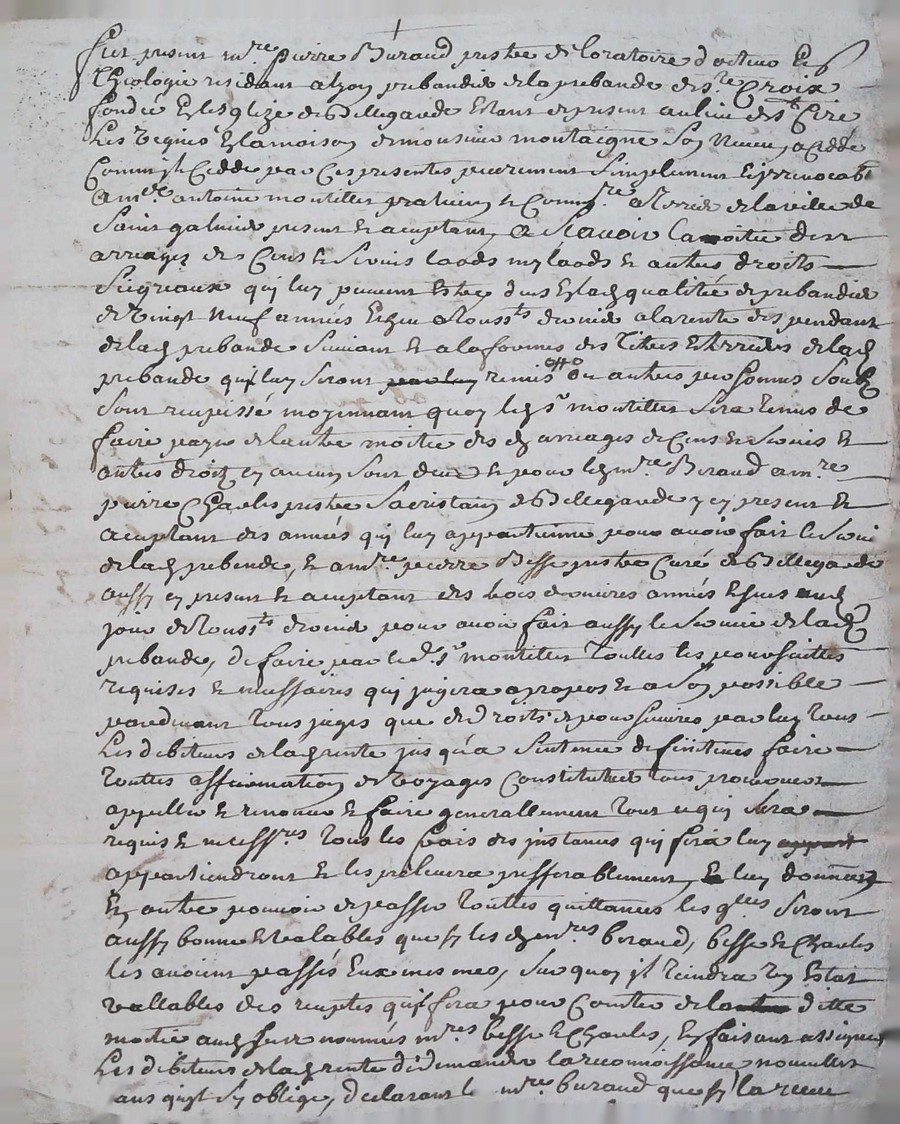 fut present m.re pierre Buraud prestre de loratoire docteur En
Theologie residant a lyon prebandier de la prebande de s.te Croix
fondée En lesglize de Bellegarde Estant de present au lieu de s.t Cire
Les Vignes En la maison de monsieur montaigne Son Neveu, a cedé
Comme jl Cedde par Ces presentes purement Simplement Et jrrevocab.t
a m.re antoine montillet praticien et Comm.re a Terrier de la ville de
Saint galmier present et aceptant, a Scavoir la moitié des
arrerages des Cens et Servis laods mylaods et autres droits
Seigriaux quj luy peuvent Estre deus En lad qualitée de prebandier
de Vingt Neuf années Echeu a Touss.ts dernier a la rente despendant
de lad prebande Suivant et a la forme des Titres et terriers de lad
prebande quj luy Seront remis ou autres personnes Soubz
Sont recepissé moyennant quoy led s.r montillet Sera tenus de
faire payer de lautre moitié des d arrerages de Cens et Servis et
autres droitz En aucun Sont deue et pour led m.re Buraud a m.re
pierre Charles prestre Sacristain de Bellegarde y En present et
aceptant des années quj luy appartienne pour avoir fait le Servi
de lad prebende, et a m.re pierre Besse prestre Curé de Bellegarde
aussy En present et aceptant des trois dernieres années Echues aud
jour de Touss.ts dernier pour avoir fait aussy le Service de lad
prebande, de faire par led. s.r montillet Touttes les poursuittes
requises et necessaires quj jugera apropos et a Son possible
pardevant tous juges que de droits de poursuivre par luy tous
Les debiteurs de lad rente jusqua Sentence definitives faire
Touttes affirmation de Voyages Constituer tous procureurs
appeller et renoncer et faire generallement tout ce quj Sera
requis et necess.res Tous les frais des jnstances quj fera luy
appartiendront et les prelevera presferablement, luy donnera
En autre pouvoir de passer Touttes quittances les q.lles Seront
aussy bonne et valables que sy les d m.res buraud, besse et Charles
les avoient passés Eux mesmes, Sur quoy jl tiendra En Estat
vallables des receptes quj fera pour Comte de ditte
moitié aud sure nommés m.res besse et Charles, En faisant assigner
Les debiteurs de lad rente de demander la reconoissance nouveller
ans quoy Sy oblige, declarant le m.re buraud que sy la reveu